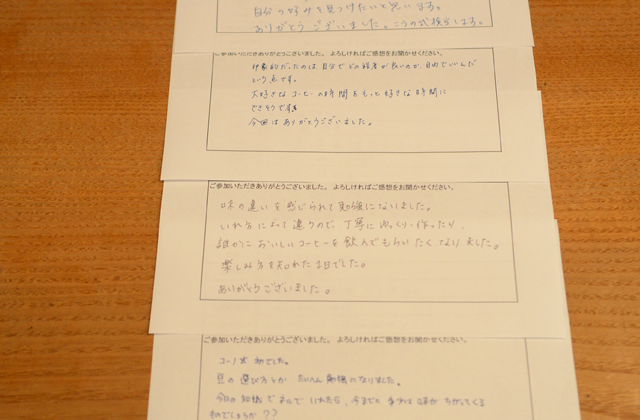 自分の好みを見つけたいと思います。
ありがとうございました。こうの式検討します。
ご参加いただきありがとうございました。よろしければご感想をお聞かせください。
印象的だったのは、自分でどの程度が良いのか、自由でいいんだ
という点です。
大好きなコーヒーの時間をもっと好きな時間に
できそうです。
今回はありがとうございました。
ご参加いただきありがとうございました。よろしければご感想をお聞かせください。
味の違いを感じられて勉強になりました。
いれ方によって違うので、丁寧にゆっくり作ったり、
誰かにおいしいコーヒーを飲んでもらいたくなりました。
楽しみ方を知れた1日でした。
ありがとうございました。
ご参加いただきありがとうございました。よろしければご感想をお聞かせください。
コーノ式 初でした。
豆の選び方とか たいへん勉強になりました。
今日の知識で わたしで いれたら、今までと 味が ちがってくる
ものでしょうか??